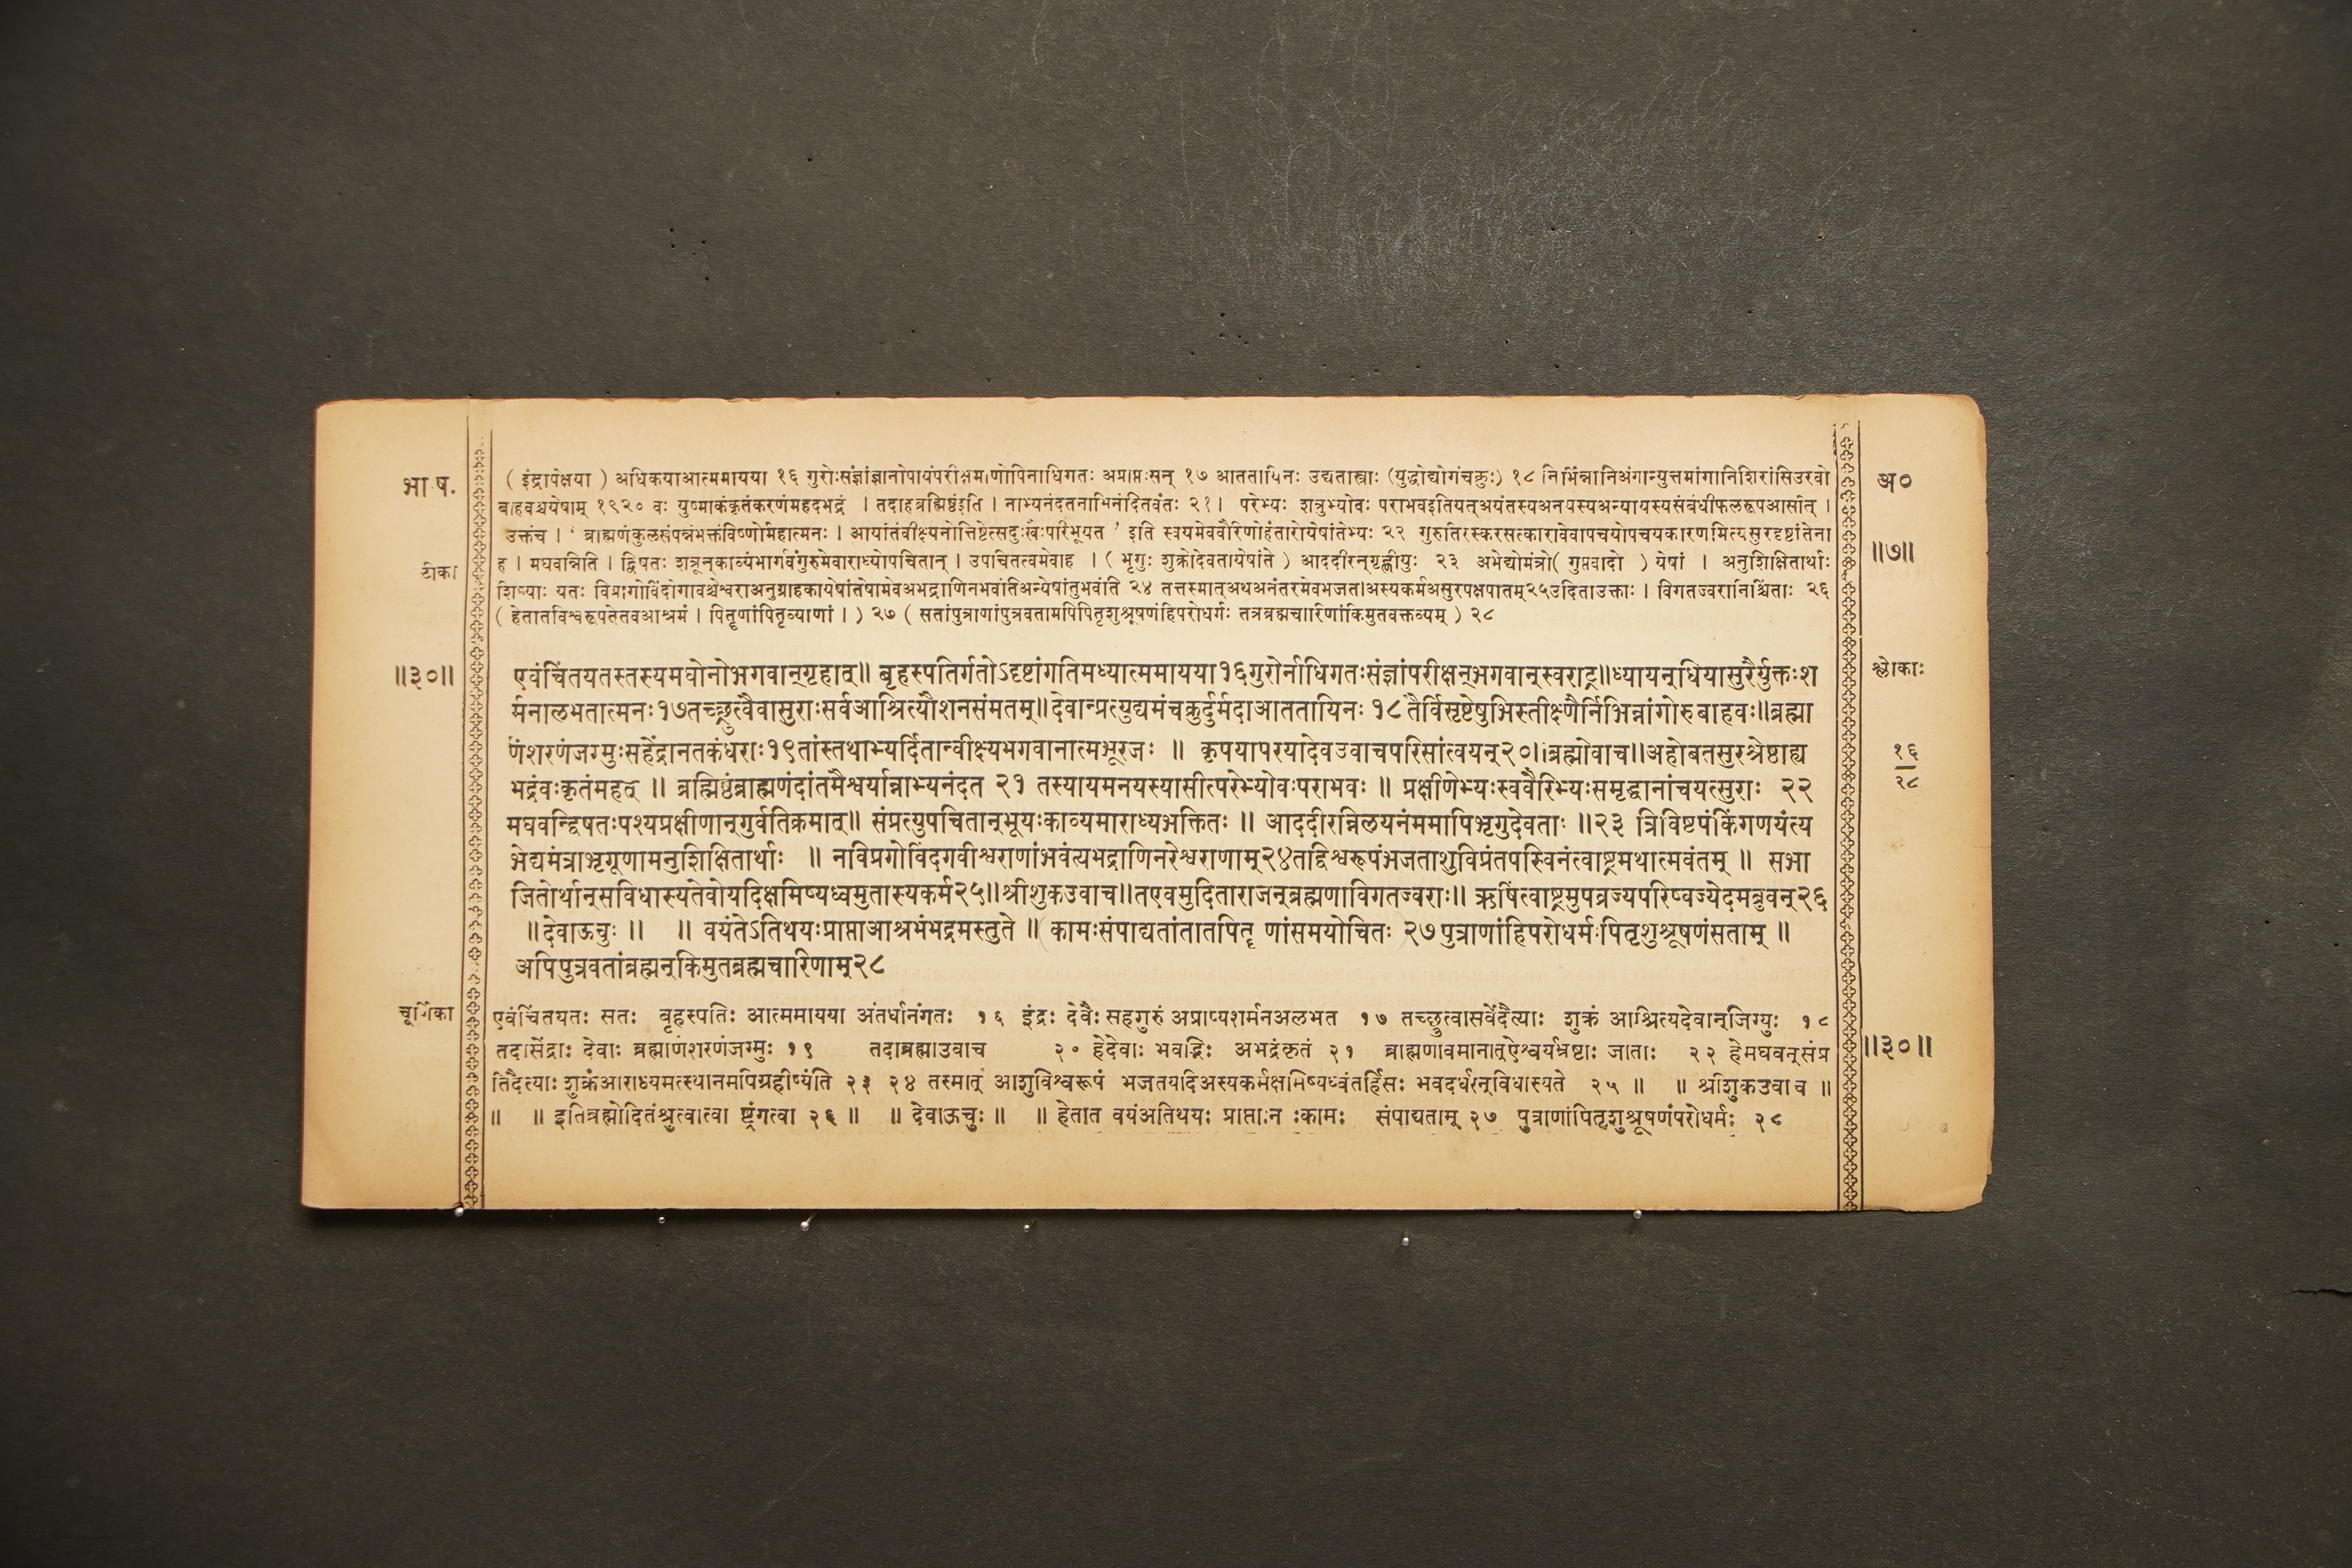 भा. ष.
( इंद्रापेक्षया ) अधिकयाआत्ममायया १६ गुरोःसंज्ञांज्ञानोपायंपरीक्षमाणोपिनाधिगतः अप्राप्तःसन् १७ आततायिनः उद्यतास्त्राः (युद्धोद्योगंचक्रुः) १८ निर्भिन्नानिअंगान्युत्तमांगानिशिरांसिउरवो
अ०
बाहवश्चयेषाम् १९२० वः युष्माकंकृतंकरणंमहदभद्रं । तदाहब्रह्मिष्ठंइति । नाभ्यनंदतनाभिनंदितवंतः २१। परेभ्यः शत्रुभ्योवः पराभवइतियत्अयंतस्यअनयस्यअन्यायस्यसंबंधीफलरूपआसीत् ।
उक्तंच । ' ब्राह्मणंकुलसंपन्नंभक्तंविष्णोर्महात्मनः । आयांतंवीक्ष्यनोत्तिष्ठेत्सदुःखैःपरिभूयत ' इति स्वयमेववैरिणोहंतारोयेषांतेभ्यः २२ गुरुतिरस्करसत्कारावेवापचयोपचयकारणमित्यसुरदृष्टांतेना
॥७॥
टीका
ह । मघवन्निति । द्विषतः शत्रून्काव्यंभार्गवंगुरुमेवाराध्योपचितान् । उपचितत्वमेवाह । ( भृगुः शुक्रोदेवतायेषांते ) आददीरन्गृह्णीयुः २३ अभेद्योमंत्रो( गुप्तवादो ) येषां । अनुशिक्षितार्थाः
शिष्याः यतः विप्रागोविंदोगावश्चेश्वराअनुग्राहकायेषांतेषामेवअभद्राणिनभवंतिअन्येषांतुभवंति २४ तत्तस्मात्अथअनंतरमेवभजताअस्यकर्मअसुरपक्षपातम्२५उदिताउक्ताः । विगतज्वरानिश्चिंताः २६
( हेतातविश्वरूपतेतवआश्रमं । पितॄणांपितृव्याणां । ) २७ ( सतांपुत्राणांपुत्रवतामपिपितृशुश्रूषणंहिपरोधर्मः तत्रब्रह्मचारिणांकिमुतवक्तव्यम् ) २८
॥३०॥
एवंचिंतयतस्तस्यमघोनोभगवान्गृहात्॥ बृहस्पतिर्गतोऽदृष्टांगतिमध्यात्ममायया१६गुरोर्नाधिगतःसंज्ञांपरीक्षन्भगवान्स्वराट्॥ध्यायन्धियासुरैर्युक्तःश
श्लोकाः
र्मनालभतात्मनः१७तच्छ्रुत्वैवासुराःसर्वआश्रित्यौशनसंमतम्॥देवान्प्रत्युद्यमंचक्रुर्दुर्मदाआततायिनः १८तैर्विसृष्टेषुभिस्तीक्ष्णैर्निर्भिन्नांगोरुबाहवः॥ब्रह्मा
णंशरणंजग्मुःसहेंद्रानतकंधराः१९तांस्तथाभ्यर्दितान्वीक्ष्यभगवानात्मभूरजः ॥ कृपयापरयादेवउवाचपरिसांत्वयन्२०॥ब्रह्मोवाच॥अहोबतसुरश्रेष्ठाह्य
१६
२८
भद्रंवःकृतंमहत् ॥ ब्रह्मिष्ठंब्राह्मणंदांतमैश्वर्यान्नाभ्यनंदत २१ तस्यायमनयस्यासीत्परेभ्योवःपराभवः ॥ प्रक्षीणेभ्यःस्ववैरिभ्यःसमृद्धानांचयत्सुराः २२
मघवन्द्विषतःपश्यप्रक्षीणान्गुर्वतिक्रमात्॥ संप्रत्युपचितान्भूयःकाव्यमाराध्यभक्तितः ॥ आददीरन्निलयनंममापिभृगुदेवताः ॥२३ त्रिविष्टपंकिंगणयंत्य
भेद्यमंत्राभृगूणामनुशिक्षितार्थाः ॥ नविप्रगोविंदगवीश्वराणांभवंत्यभद्राणिनरेश्वराणाम्२४तद्विश्वरूपंभजताशुविप्रंतपस्विनंत्वाष्ट्रमथात्मवंतम् ॥ सभा
जितोर्थान्सविधास्यतेवोयदिक्षमिष्यध्वमुतास्यकर्म२५॥श्रीशुकउवाच॥तएवमुदिताराजन्ब्रह्मणाविगतज्वराः॥ ऋषिंत्वाष्ट्रमुपव्रज्यपरिष्वज्येदमब्रुवन्२६
॥देवाऊचुः ॥ ॥ वयंतेऽतिथयःप्राप्ताआश्रमंभद्रमस्तुते ॥ कामःसंपाद्यतांतातपितॄ णांसमयोचितः २७पुत्राणांहिपरोधर्मःपितृशुश्रूषणंसताम् ॥
अपिपुत्रवतांब्रह्मन्किमुतब्रह्मचारिणाम्२८
चूर्णिका
एवंचिंतयतः सतः बृहस्पतिः आत्ममायया अंतर्धानंगतः १६ इंद्रः देवैः सहगुरुं अप्राप्यशर्मनअलभत १७ तच्छ्रुत्वासर्वेदैत्याः शुक्रं आश्रित्यदेवान्जिग्युः १८
तदासेंद्राः देवाः ब्रह्माणंशरणंजग्मुः १९ तदाब्रह्माउवाच २० हेदेवाः भवद्भिः अभद्रंकृतं २१ ब्राह्मणावमानात्ऐश्वर्यभ्रष्टाः जाताः २२ हेमघवन्संप्र
॥३०॥
तिदैत्याः शुक्रंआराध्यमत्स्थानमपिग्रहीष्यंति २३ २४ तस्मात् आशुविश्वरूपं भजतयदिअस्यकर्मक्षमिष्यध्वंतर्हिसः भवदर्थान्विधास्यते २५ ॥ ॥ श्रीशुकउवाच ॥
॥ ॥ इतिब्रह्मोदितंश्रुत्वात्वा ष्ट्रंगत्वा २६ ॥ ॥ देवाऊचुः ॥ ॥ हेतात वयंअतिथयः प्राप्ताःन ःकामः संपाद्यताम् २७ पुत्राणांपितृशुश्रूषणंपरोधर्मः २८